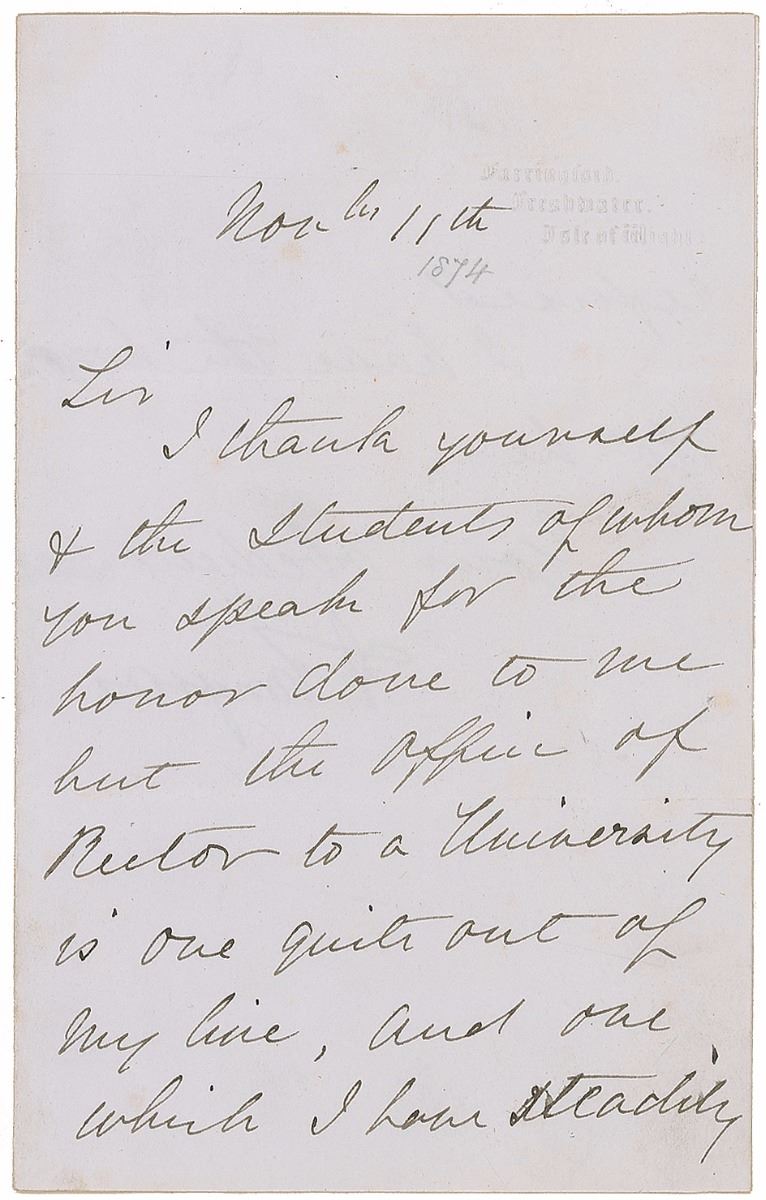 Farringford.
Freshwater.
Isle of Wight.
Novbr 11th
1874
Sir
I thank yourself
& the Students of whom
you speak for the
honor done to me
but the Office of
Rector to a University
is one quite out of
my line, and one
which I have steadily